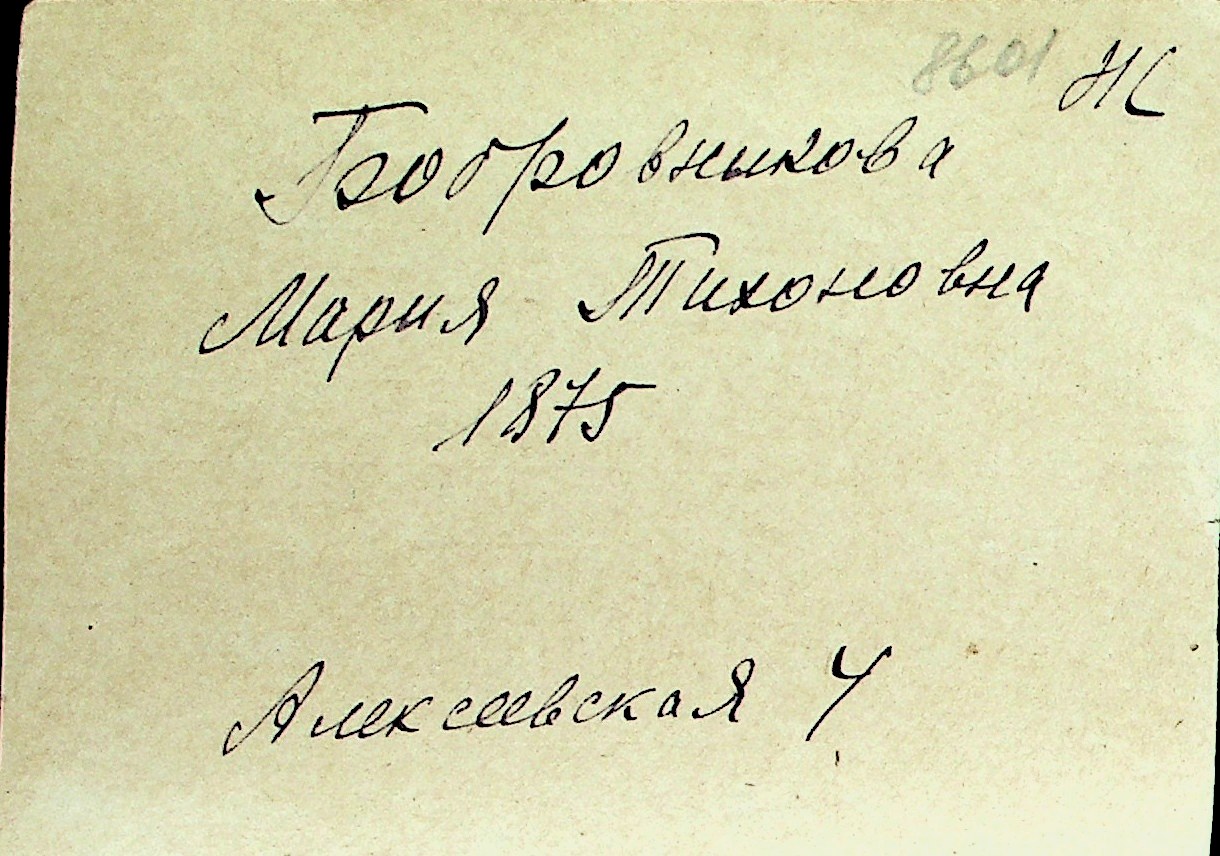 8601 Ж
Бобровникова
Мария Тихоновна
1875
Алексеевская 4